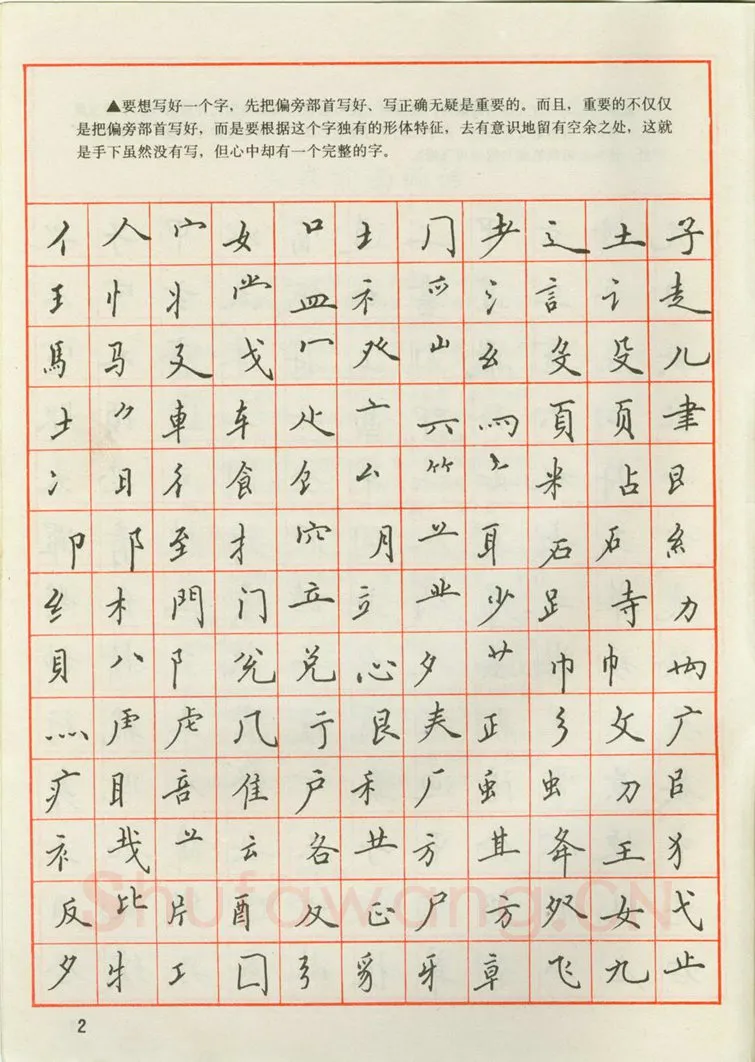 ▲要想写好一个字，先把偏旁部首写好、写正确无疑是重要的。而且，重要的不仅仅
是把偏旁部首写好，而是要根据这个字独有的形体特征，去有意识地留有空余之处，这就
是手下虽然没有写，但心中却有一个完整的字。
亻 人 宀 女 口 土 冂 耂 辶 土 子
王 忄 丬 龸 皿 礻 覀 氵 訁 讠 走
馬 马 廴 戈 冖 癶 山 幺 殳 儿
士 車 车 亠 六 罒 頁 页 聿
冫 日 彳 食 厶 ⺮ 米 占
卩 阝 至 扌 穴 月 䒑 耳 石 石 糹
纟 木 門 门 立 立 业 少 𧾷 寺 力
貝 八 阝 兑 心 夕 艹 巾 巾
灬 虍 虍 几 亍 艮 夫 正 彡 攵 广
疒 目 咅 隹 户 禾 厂 虫 虫 刀
衤 䒑 云 各 廿 方 其 夅 王 犭
反 比 片 酉 又 正 尸 方 女 弋
夕 牛 工 囗 弓 豸 牙 章 飞 九 止
Shufawang.CN
2